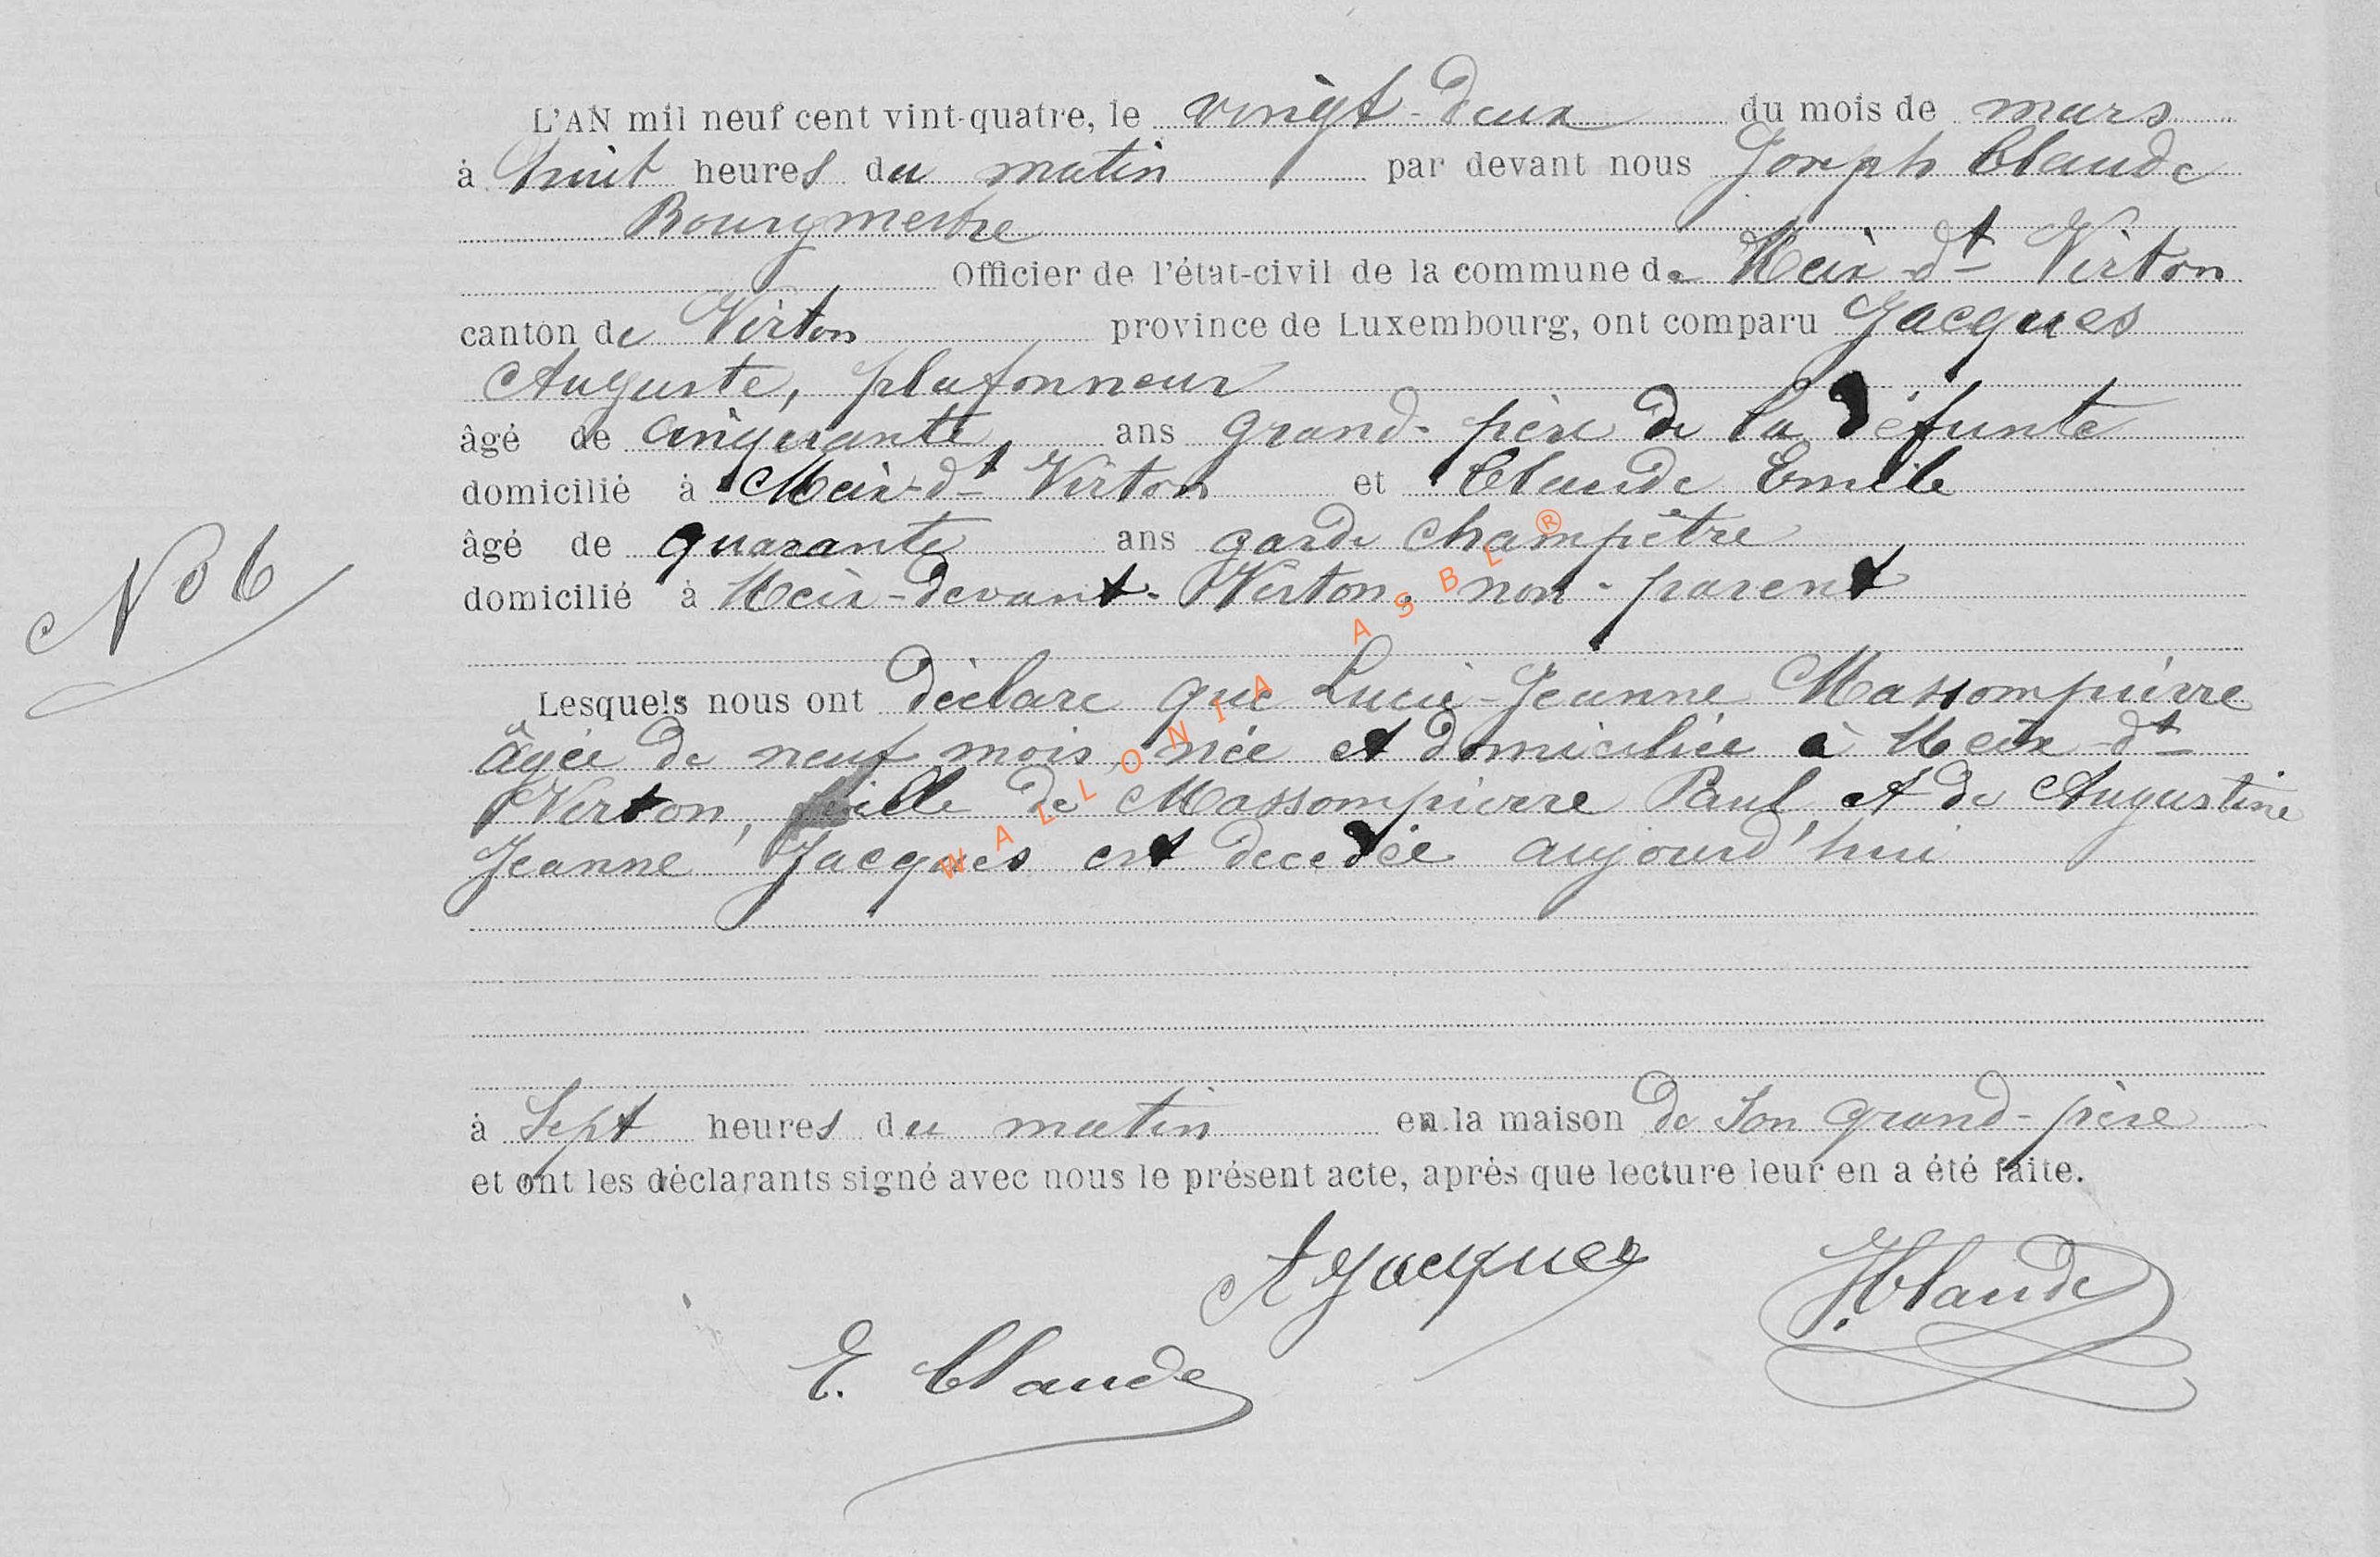 L'AN mil neuf cent vint-quatre, le vingt-deux du mois de mars
à huit heures du matin par devant nous Joseph Claude
Bourgmestre
Officier de l'état-civil de la commune de Meix-dt Virton
canton de Virton province de Luxembourg, ont comparu Jacques
Auguste, plafonneur
âgé de cinquante ans grand-père de la défunte
domicilié à Meix-dt Virton et Claude Emile
âgé de quarante ans garde champêtre
domicilié à Meix-devant-Virton, non-parent
No 6
Lesquels nous ont déclaré que Lucie-Jeanne Massompierre
âgée de neuf mois, née et domiciliée à Meix-dt
Virton, fille de Massompierre Paul et de Augustine
Jeanne Jacques est décedée aujourd'hui
à sept heures du matin en la maison de son grand-père
et ont les déclarants signé avec nous le présent acte, après que lecture leur en a été faite.
A Jacques
J Claude
E. Claude
WALLONIA ASBL ®